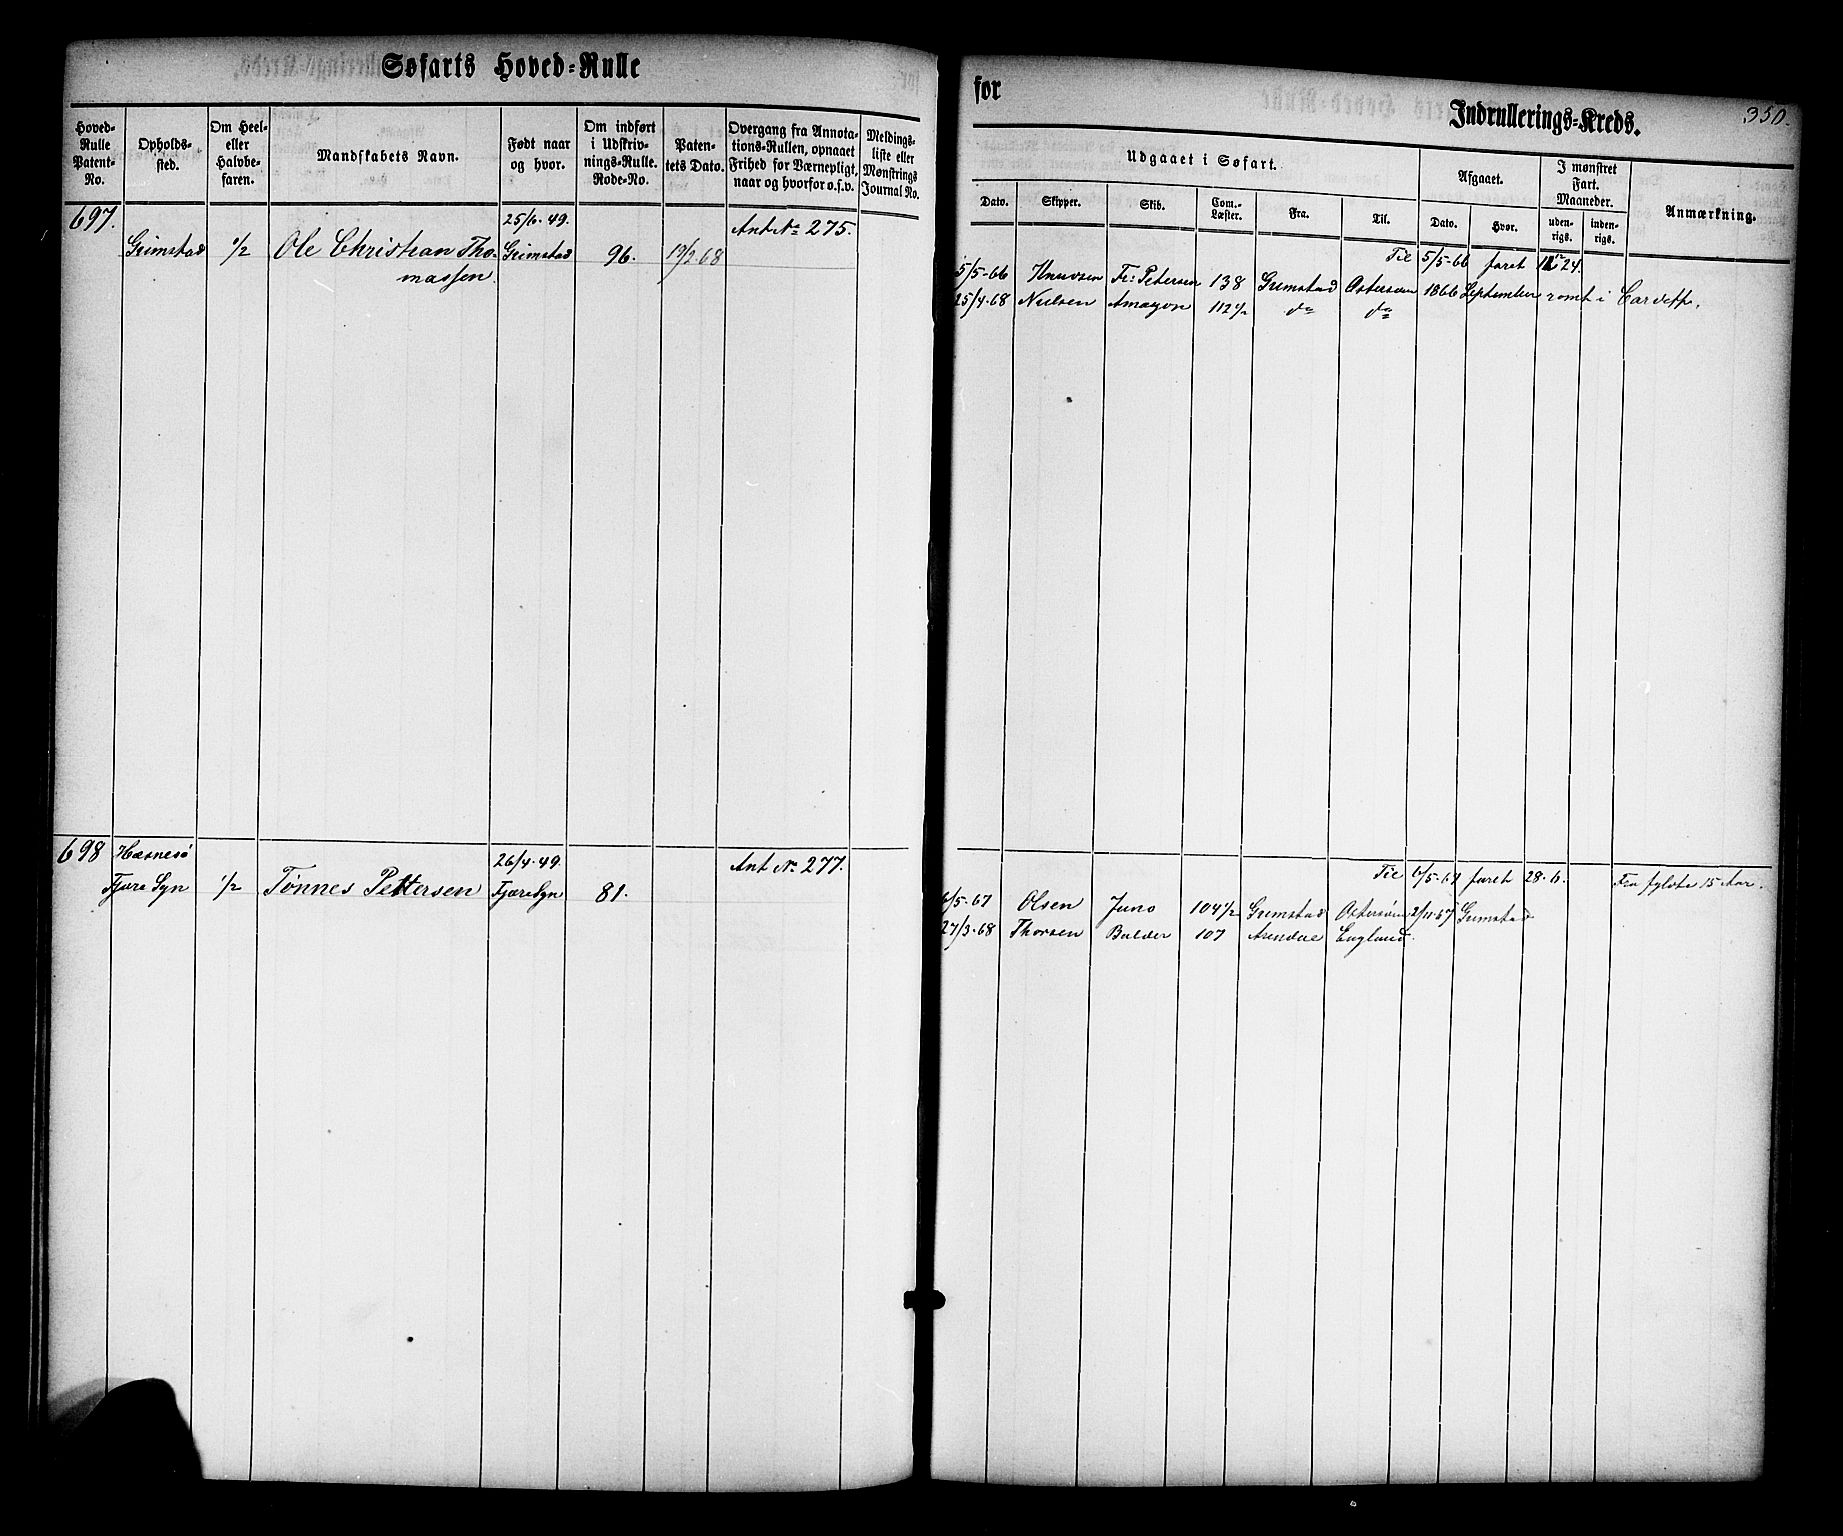 Søfarts Hoved-Rulle
Hoved-Rulle Patent-No.
Opholds-sted.
Om Heel- eller Halvbe-faren.
Mandskabets Navn.
Født naar og hvor.
Om indført i Udskriv-nings-Rulle. Rode-No.
Paten-tets Dato.
Overgang fra Annota-tions-Rullen, opnaaet Frihed for Værnepligt, naar og hvorfor o.s.v.
Meldings-liste eller Mønstrings Journal No.
697.
Grimstad
1/2
Ole Christian Tho-
massen.
25/6. 49.
Grimstad
96.
19/2 68
Ant No 275.
698
Hæsnesø
Fjære Sgn
1/2
Tønnes Pettersen
26/4. 49.
Fjære Sgn
81.
Ant No 277.
for
Indrullerings-Kreds.
350.
Udgaaet i Søfart.
Afgaaet.
I mønstret Fart. Maaneder.
Anmærkning.
Dato.
Skipper.
Skib.
Com.-Læster.
Fra.
Til.
Dato.
Hvor.
uden-rigs.
inden-rigs.
Til 5/5-66 faret 24.
5/5-66 Knudsen Fr: Petersen 138 Grimstad Østersøen 1866 September romt i Cardeff.
25/4-68 Nielsen Amazon 112 1/2 do do
Til 6/5-67 faret 28-6. Fra fyldte 15 Aar.
6/5-67 Olsen Juno 104 1/2 Grimstad Østersøen 2/11-67 Grimstad
27/3-68 Thorsen Balder 107 Arendal England.